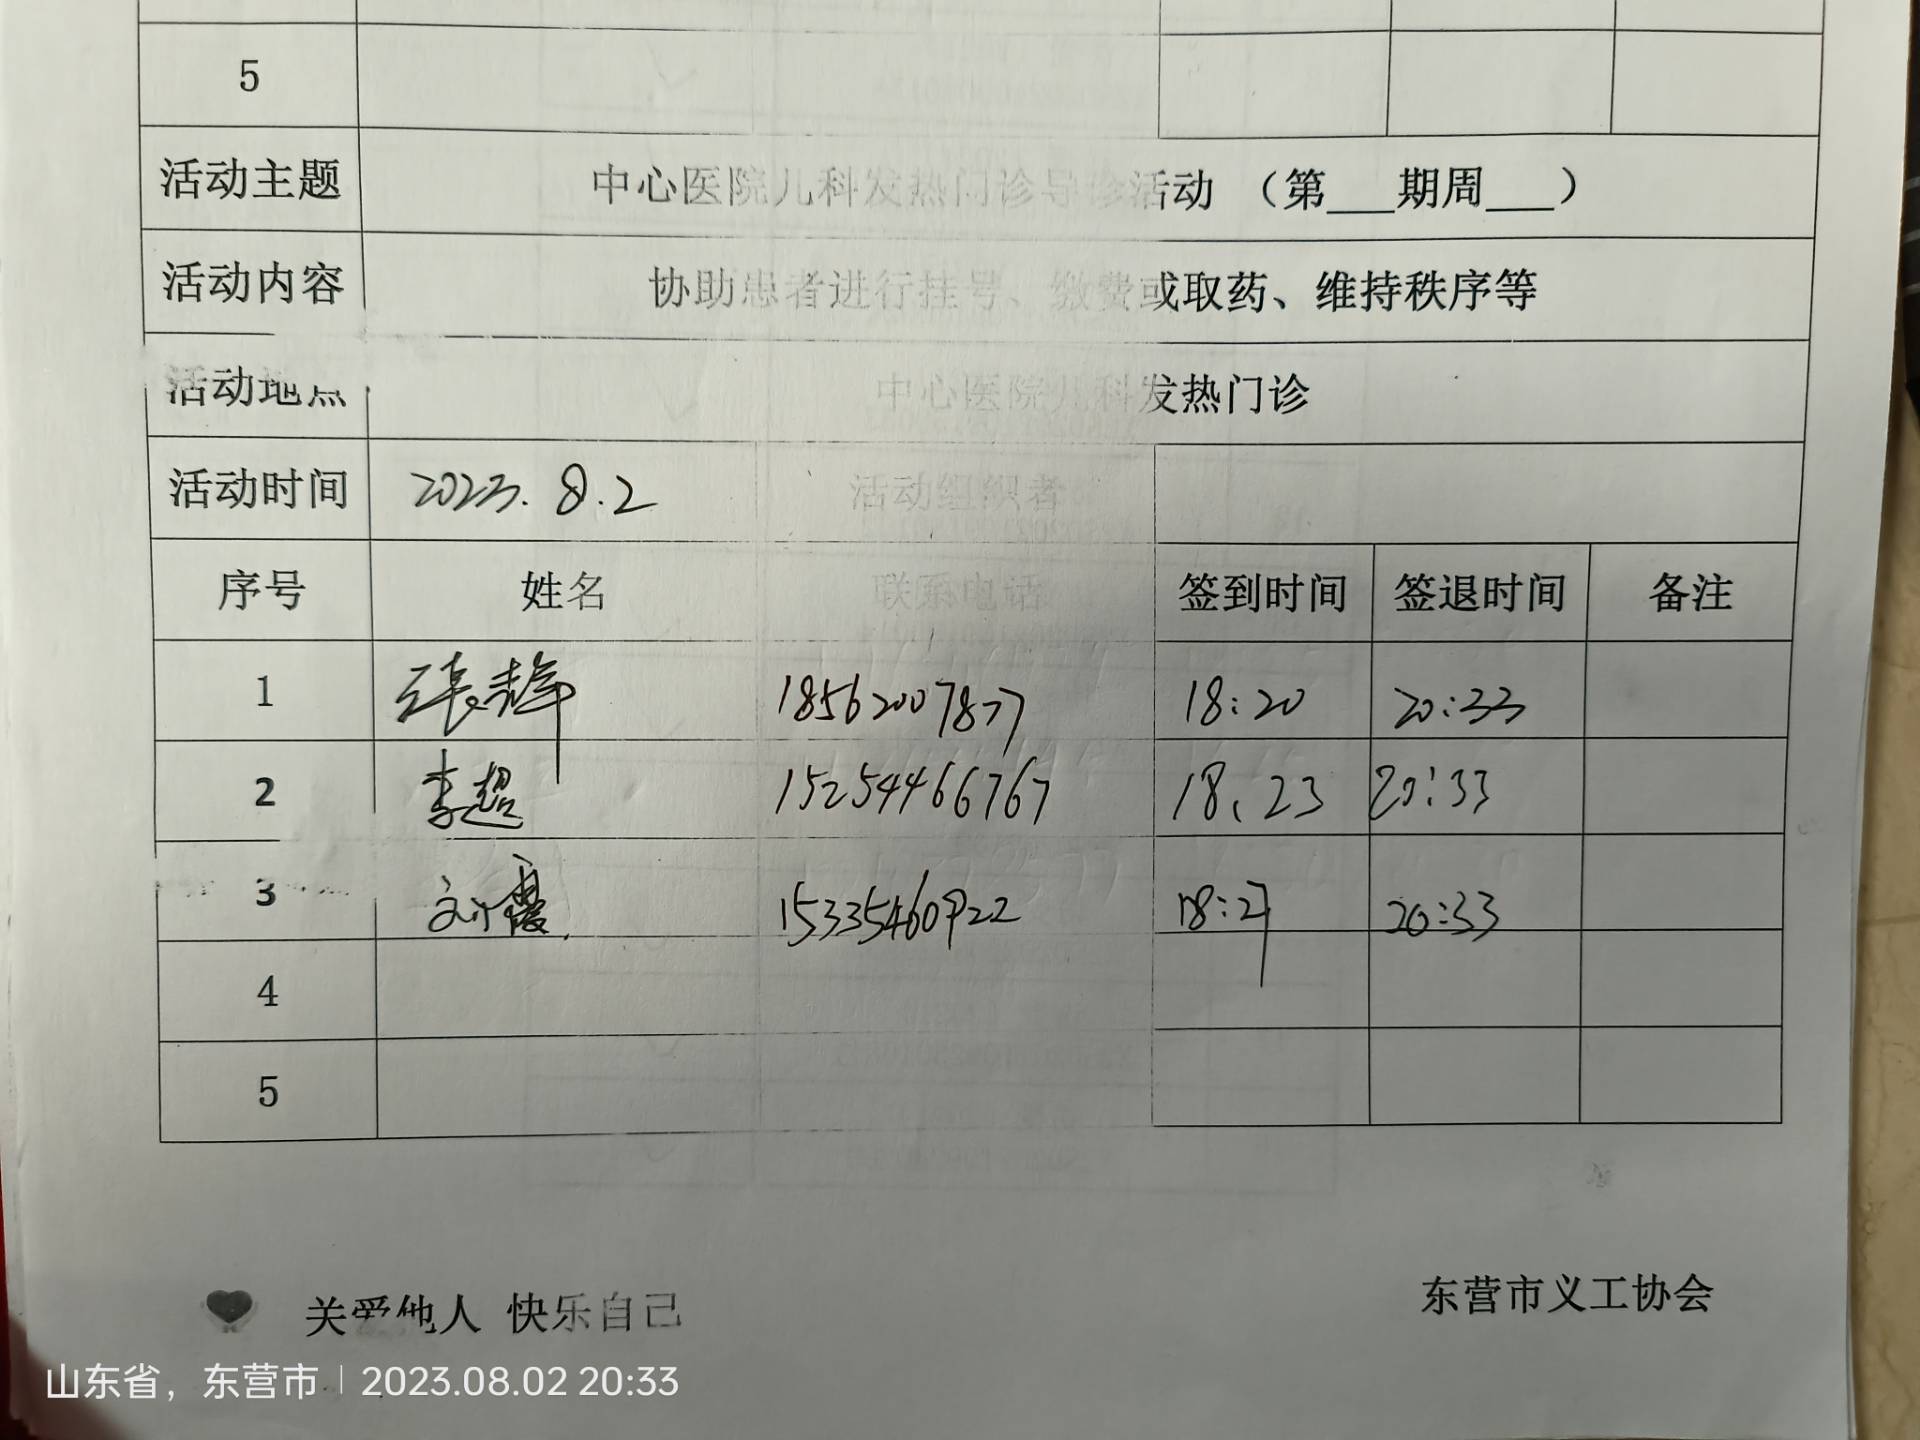 5
活动主题 中心医院儿科发热门诊导诊活动 （第___期周___）
活动内容 协助患者进行挂号、缴费或取药、维持秩序等
活动地点 中心医院儿科发热门诊
活动时间 2023.8.2 活动组织者
序号 姓名 联系电话 签到时间 签退时间 备注
1 张耀 18562007877 18:20 20:33
2 李超 15254466767 18:23 20:33
3 刘霞 15335460922 18:27 20:33
4
5
关爱他人 快乐自己
东营市义工协会
山东省，东营市 | 2023.08.02 20:33